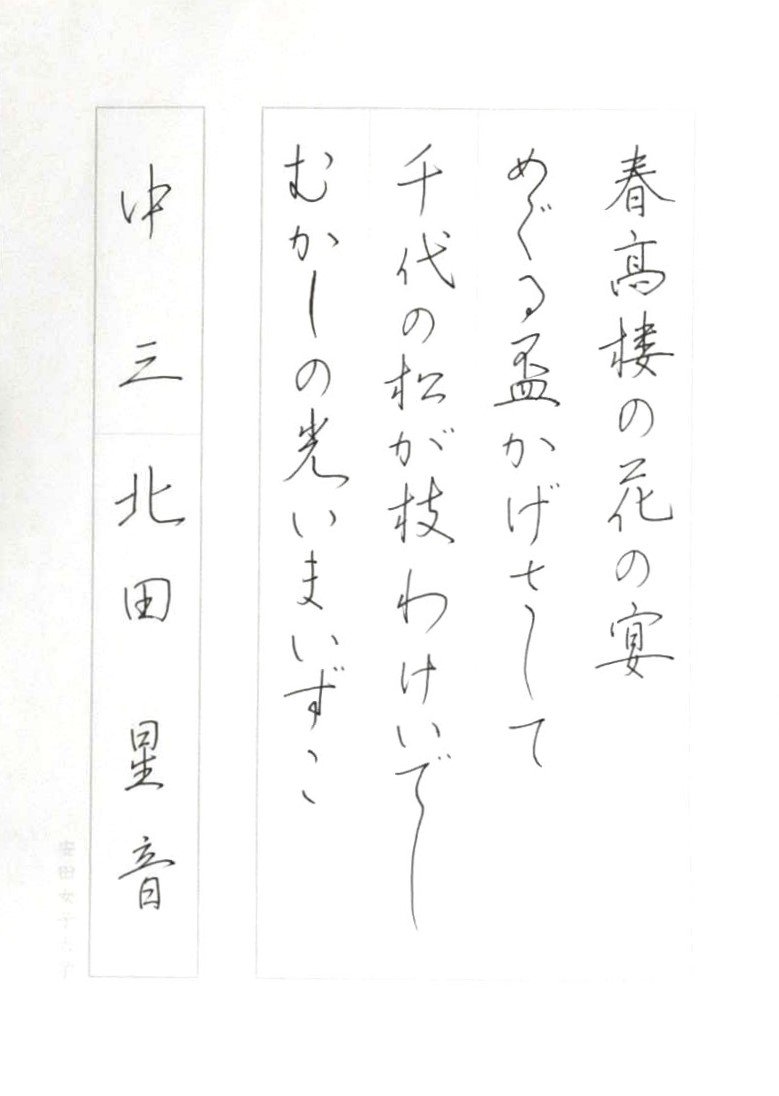 春高楼の花の宴
めぐる盃かげさして
千代の松が枝わけいでし
むかしの光いまいずこ
中三 北田星音
安田女子大学